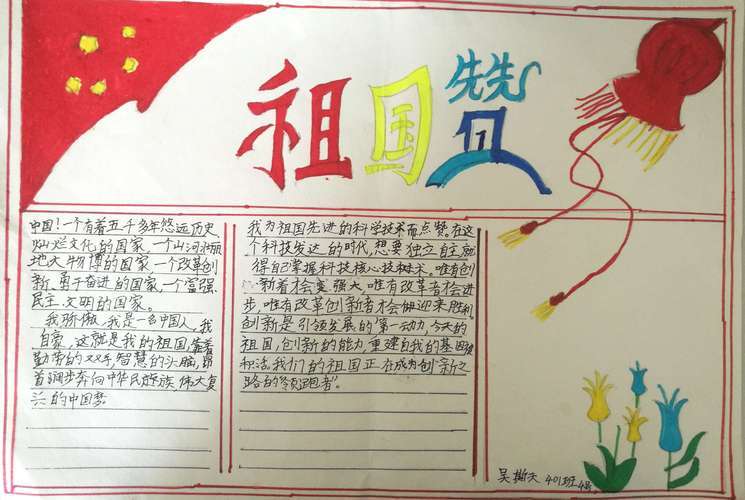 祖国赞
中国！一个有着五千多年悠远历史、
灿烂文化的国家，一个山河壮丽
地大物博的国家一个改革创
新、勇于奋进的国家，一个富强、
民主、文明的国家。
我骄傲，我是一名中国人，我
自豪，这就是我的祖国，靠着
勤劳的双手，智慧的头脑，昂
首阔步奔向中华民族伟大复
兴的中国梦。
我为祖国先进的科学技术而点赞。在这
个科技发达的时代，想要独立自主，就
得自己掌握科技核心技术。唯有创
新着才会变强大，唯有改革者才会进
步，唯有改革创新者才会迎来胜利。
创新是引领发展的第一动力，今天的
祖国，创新的能力，重建自我的基因
和活。我们的祖国正在成为创新之
路的“领跑者”。
吴 天 401班